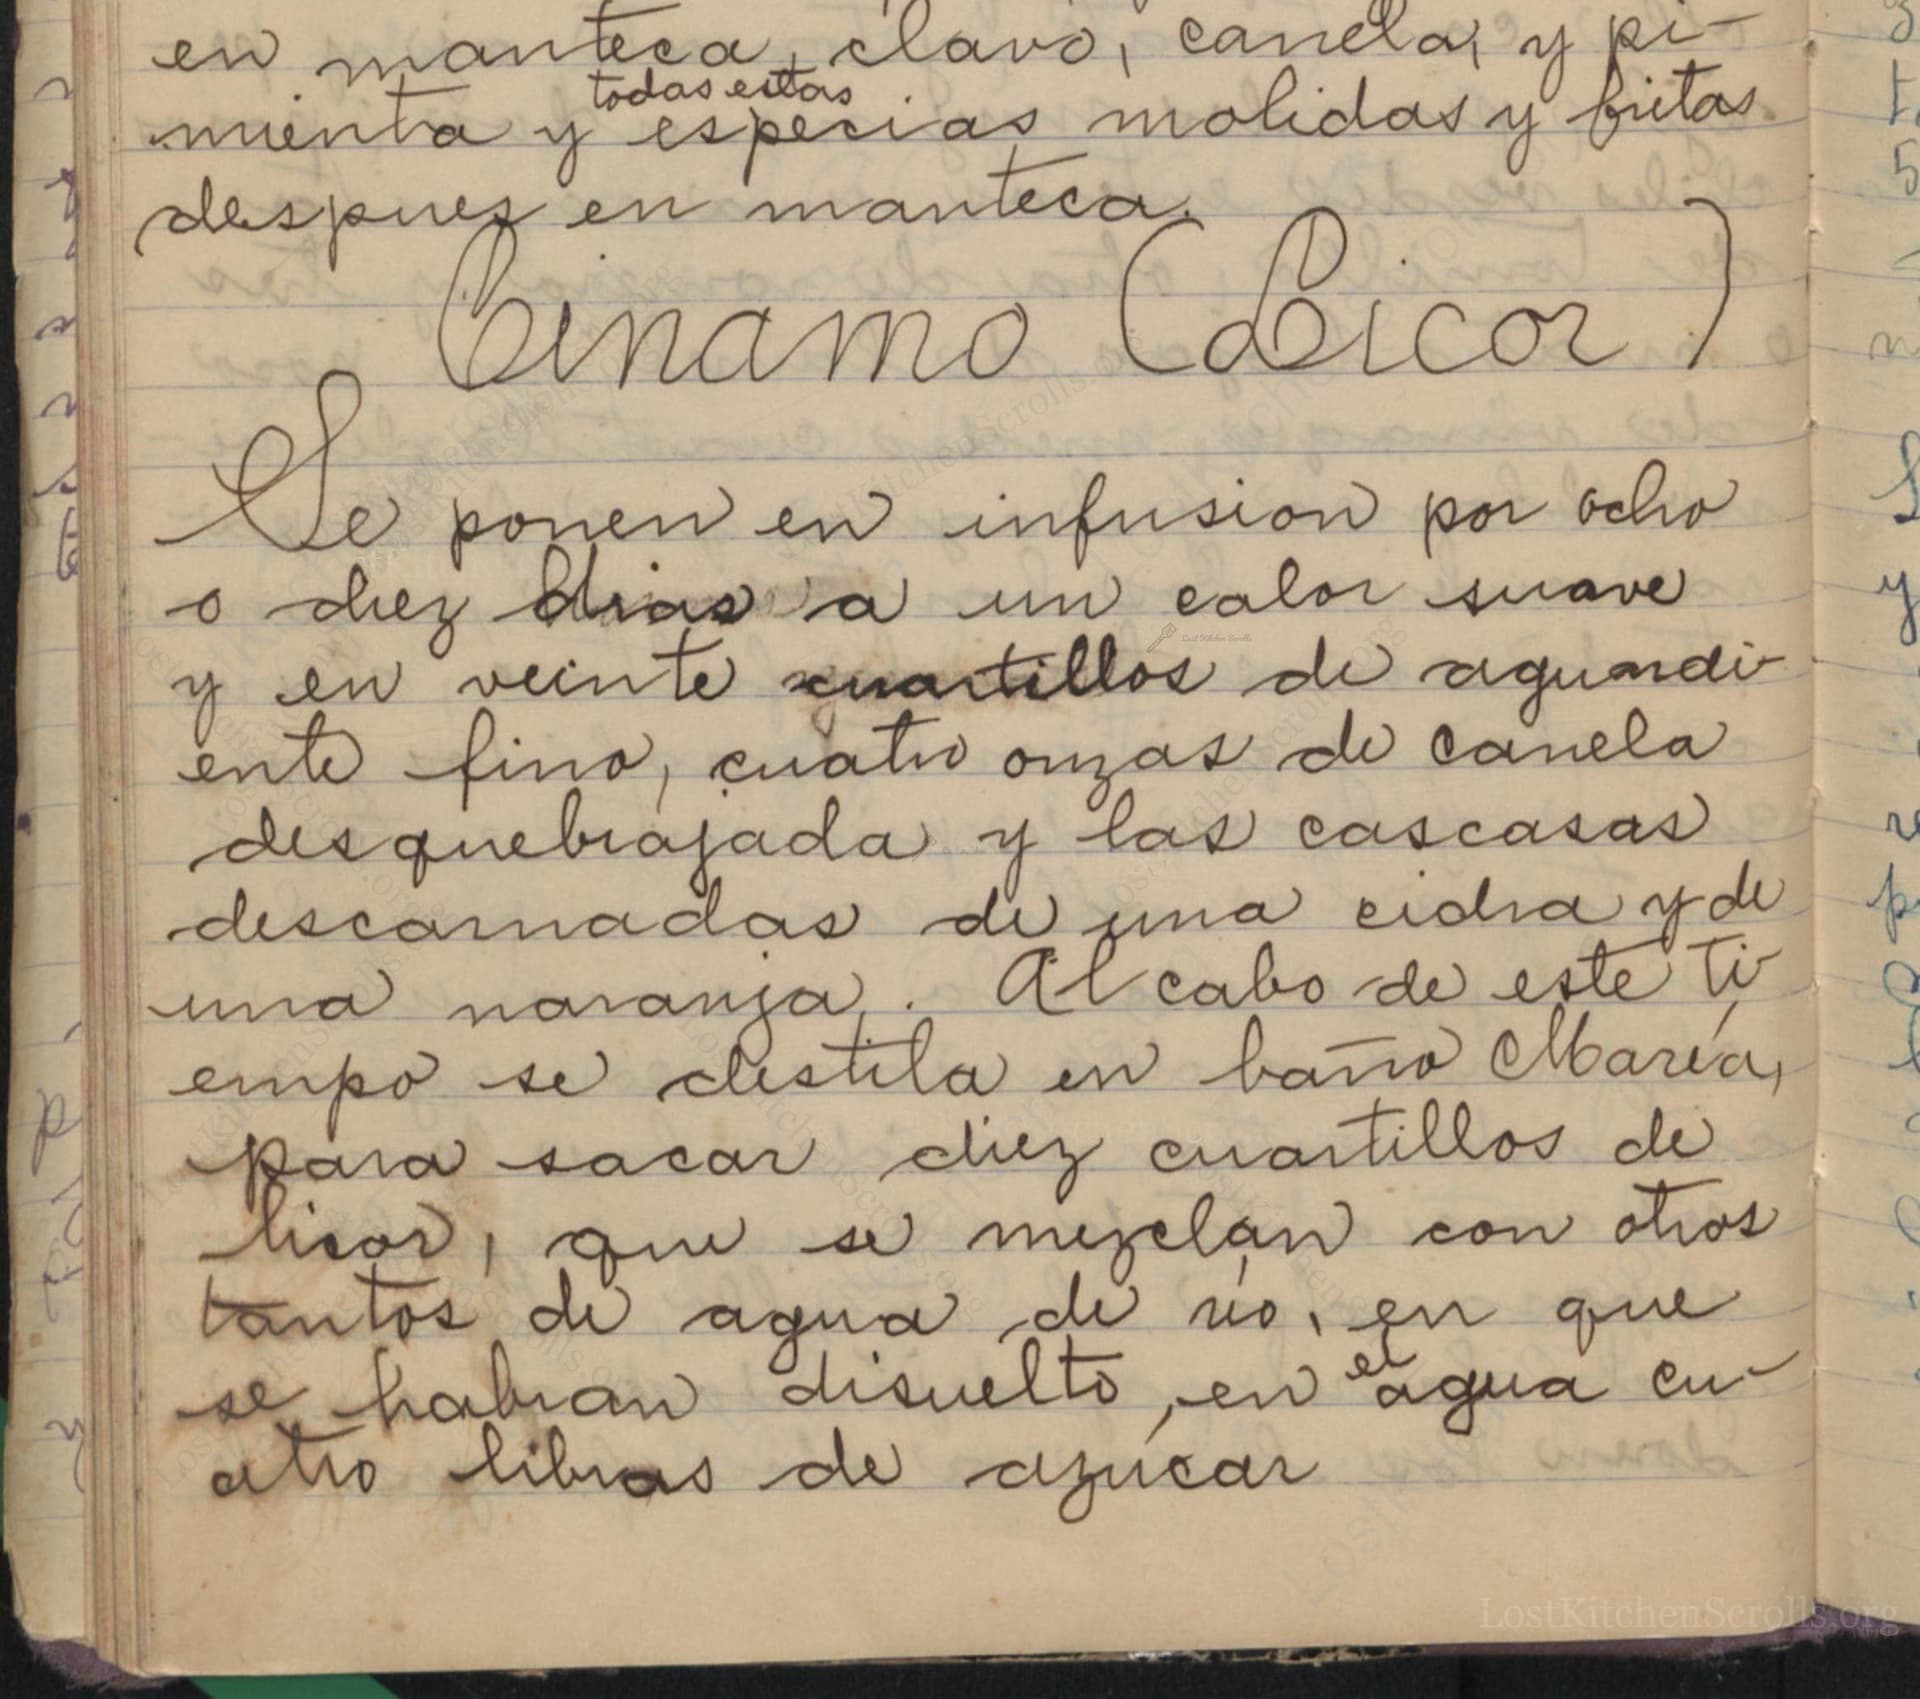 en manteca, clavo, canela, y pi-
todas estas
mienta y especias molidas y fritas
despues en manteca.
Cinamo (Licor)
Se ponen en infusion por ocho
o diez dias a un calor suave
y en veinte cuartillos de aguardi-
ente fino, cuatro onzas de canela
desquebrajada y las cascasas
descarnadas de una cidra y de
una naranja. Al cabo de este ti-
empo se destila en baño María,
para sacar diez cuartillos de
licor, que se mezclan con otros
tantos de agua de río, en que
se habran disuelto, en el agua cu-
atro libras de azúcar
Lost Kitchen Scrolls
LostKitchenScrolls.org